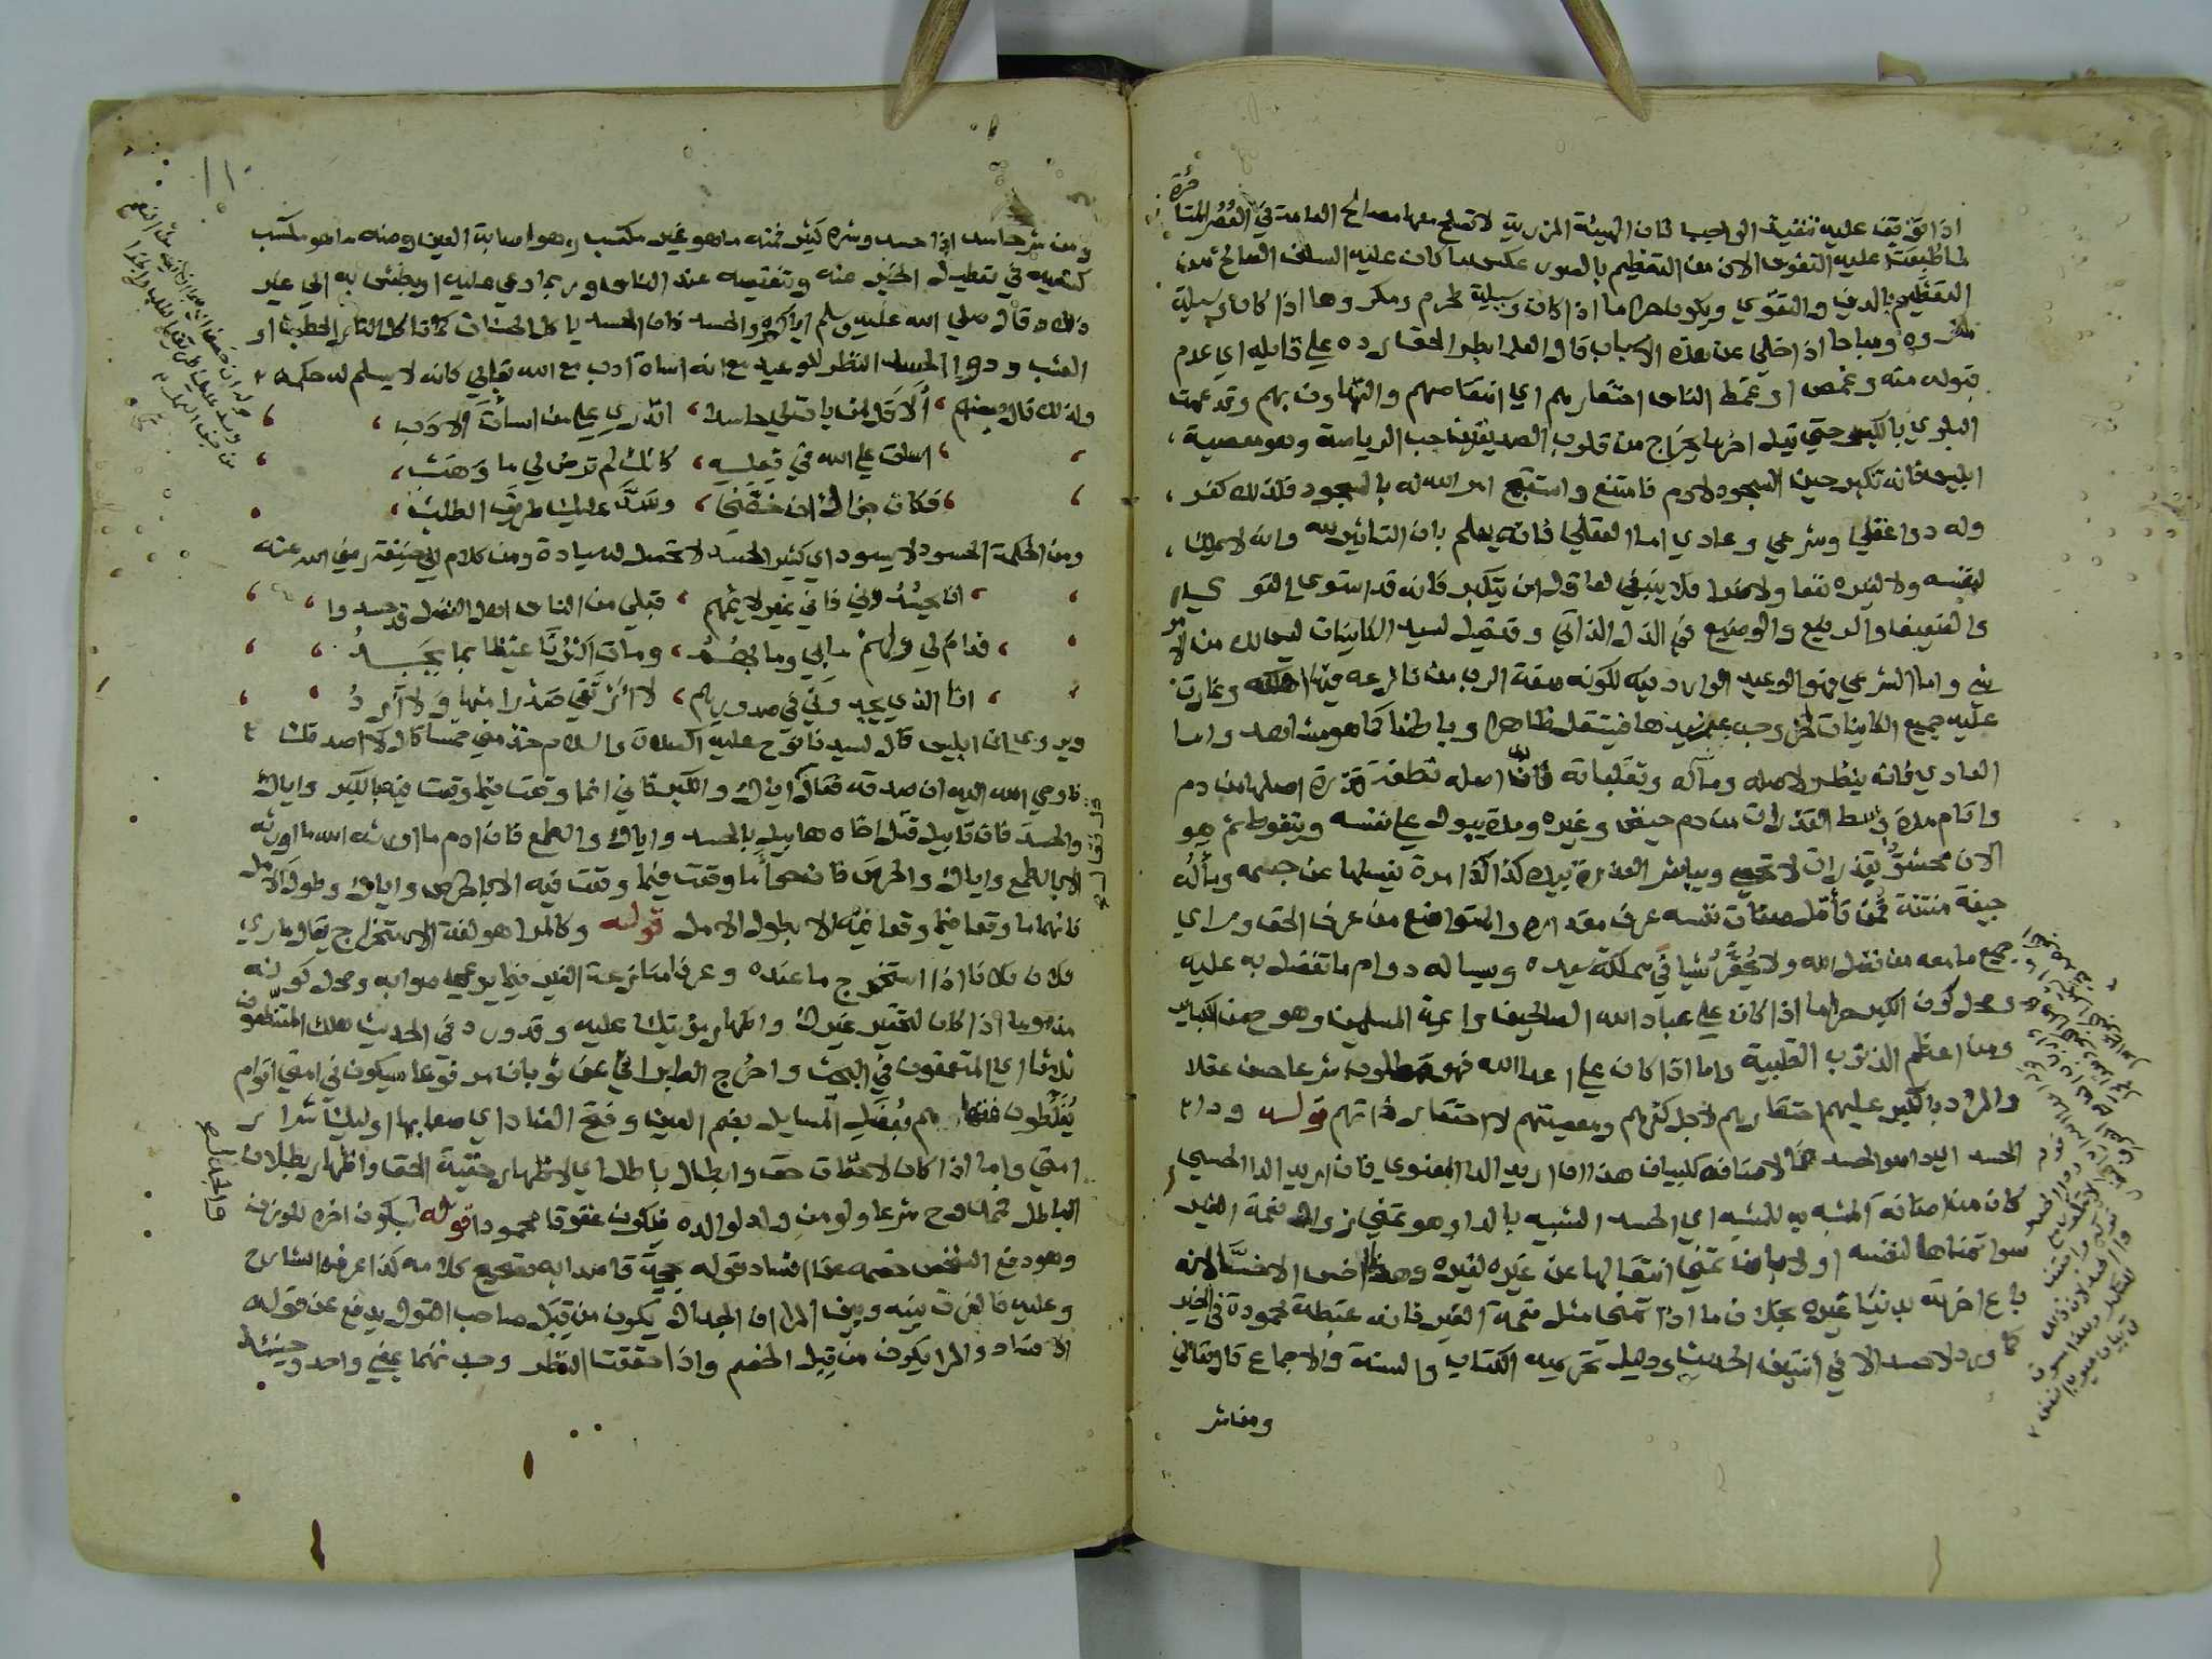 اذا توقف عليه تنفيذ الواجب فان الهيئة المزرية لا تصلح معها مصالح العامة في العصر المتأخرة
لما طبعت عليه النفوس الان من التعظيم بالصور عكس ما كان عليه السلف الصالح من
التعظيم بالدين والتقوي ويكون حراما اذا كان وسيلة لمحرم ومكروها اذا كان وسيلة
لمكروه ومباحا اذا خلي عن هذه الاسباب قال العلما بطر الحق رده علي قايله اي عدم
قبوله منه وغمص او وغمط الناس احتقارهم اي انتقاصهم والتهاون بهم وقد عمت
البلوي بالكبر حتي قيل اخر ما يخرج من قلوب الصديقين حب الرياسة وهو معصية
ابليس فانه تكبر حين السجود لادم فامتنع واستقبح امر الله له بالسجود فلذلك كفر
وله دوا عقلي وشرعي وعادي اما العقلي فانه يعلم بان التاثير لله وانه لا يملك
لنفسه ولا لغيره نفعا ولا ضرا فلا ينبغي لعاقل ان يتكبر فانه قد استوي القوي
والضعيف والرفيع والوضيع في الذل الذاتي وقد قيل لسيد الكاينات ليس لك من الامر
شي واما الشرعي فهو الوعيد الوارد فيه لكونه صفة الرب من نازعه فيها اهلكه وغارت
عليه جميع الكاينات لخروجه عن سيدها فيستقل ظاهرا وباطنا كما هو مشاهد واما
العادي فانه ينظر لاصله وماله وتقلباته فان اصله نطفة قذرة اصلها من دم
واقام مدة وسط القذرات من دم حيض وغيره ومدة يبول علي نفسه ويتغوط ثم هو
الان محشو بقذرات لا تحصي ويباشر العذرة بيده كذا كذا مرة يغسلها عن جسمه وماله
جيفة منتنة فمن تأمل صفات نفسه عرف مقداره والمتواضع من عرف الحق وراي
جميع ما معه من فضل الله ولا يحقر شيا في مملكة سيده ويساله دوام ما تفضل به عليه
ومحل كون الكبر حراما اذا كان علي عباد الله الصالحين وايمة المسلمين وهو حين من الكباير
ومن اعظم الذنوب القلبية واما اذا كان علي اعدا الله فهو مطلوب شرعا حسن عقلا
والمراد بالكبر عليهم احتقارهم لاجل كفرهم ومعصيتهم لا احتقار ذاتهم قوله ودا
الحسد الدا هو الحسد فالاضافة للبيان هذا ان اريد الدا المعنوي فان اريد الدا الحسي
كان من اضافة المشبه به للمشبه اي الحسد الشبيه بالدا وهو تمني زوال نعمة الغير
سوا تمناها لنفسه او لا بان تمني انتقالها عن غيره لغيره وهذا اخس الاخسا لانه
باع اخرته بدنيا غيره بخلاف ما اذا تمني مثل نعمة الغير فانه غبطة محمودة في الخير
كما ورد لا حسد الا في اثنتين الحديث ودليل تحريمه الكتاب والسنة والاجماع قال تعالي
ومن شر
ومن شر حاسد اذا حسد وشره كثير فمنه ما هو غير مكتسب وهو اصابة العين ومنه ما هو مكتسب
كسعيه في تعطيل الخير عنه وتنقيصه عند الناس وربما دعي عليه او بطش به الي غير
ذلك وقال صلي الله عليه وسلم اياكم والحسد فان الحسد ياكل الحسنات كما تاكل النار الحطب او
العشب ودوا الحسد النظر للوعيد مع انه اساة ادب مع الله تعالي كانه لا يسلم له حكمه
ولذلك قال بعضهم ألا قل لمن بات لي حاسدا اتدري علي من اسأت الادب
اسات علي الله في فعله كانك لم ترض لي ما وهب
فكان جزاك ان خصني وسد عليك طريق الطلب
ومن الحكمة الحسود لا يسود اي كثير الحسد لا تحصل له سيادة ومن كلام ابي حنيفة رضي الله عنه
ان يحسدوني فاني غير لايمهم قبلي من الناس اهل الفضل قد حسدوا
فدام لي ولهم ما بي وما بهم ومات اكثرنا غيظا بما يجد
انا الذي يجدوني في صدورهم لا ارتقي صدرا منها ولا ارد
ويروي ان ابليس قال لسيدنا نوح عليه الصلاة والسلام خذ مني خمسا قال لا اصدقك
فاوحي الله اليه ان صدقه فقال اياك والكبر فاني انما وقعت فيما وقعت فيه بالكبر واياك
والحسد فان قابيل قتل اخاه هابيل بالحسد واياك والطمع فان ادم ما اورثه الله ما اورثه
الا بالطمع واياك والحرص فان حوا ما وقعت فيما وقعت فيه الا بالحرص واياك وطول الامل
فانهما ما وقعا فيما وقعا فيه الا بطول الامل قوله وكالمرا هو لغة الاستخراج يقال ماري
فلان فلانا اذا استخرج ما عنده وعرفا منازعة الغير فيما يدعي صوابه ومحل كونه
مذموما اذا كان لتحقير غيرك واظهار مزيتك عليه وقد ورد في الحديث هلك المتنطعون
ثلاثا اي المتعمقون في البحث واخرج الطبراني عن ثوبان مرفوعا سيكون في امتي اقوام
يغلطون فقهاهم بعضل المسايل بضم العين وفتح الضاد اي صعابها اوليك شرار
امتي واما اذا كان لاحقاق حق وابطال باطل اي لاظهار حقية الحق واظهار بطلان
الباطل فممدوح شرعا ولو من ولد لوالده فيكون عقوقا محمودا قوله بسكون اخره للوزن
وهو دفع الشخص خصمه عن افساد قوله بحجة قاصدا به تصحيح كلامه كذا عرفه الشارح
وعليه فالفرق بينه وبين المرا ان الجدال يكون من قبل صاحب القول يدفع عن قوله
الافساد والمرا يكون من قبل الخصم واذا حققت النظر وجدتهما بمعني واحد وحينئذ